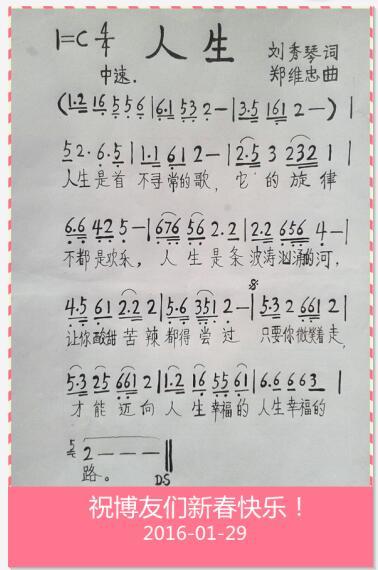 1=C 4/4 人生 刘秀琴词
中速. 郑维忠曲
(1.2 16 5 5 6 | 6.1 53 2 - | 3.5 161 2 - )
5 2. 6. 5 | 1.1 61 2 - | 2.5 3 232 1 |
人生是首 不寻常的歌, 它的旋律
6.6 42 5 - | 676 56 2.2 | 2.2 656 4 - |
不都是欢乐, 人生是条波涛汹涌的河,
4.5 61 2.2 2 | 5.6 351 2 - | 5.3 2 661 2 |
让你酸甜苦辣都得尝过 只要你微笑着走,
5.3 25 661 2 | 1.2 16 55 61 | 6.6 663 |
才能迈向人生幸福的人生幸福的
5 2 - - - ||
路。 D.S
祝博友们新春快乐！
2016-01-29